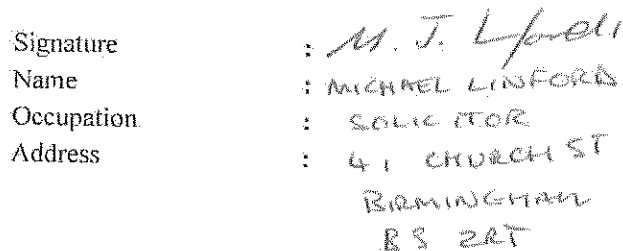 Signature : M. J. L
Name : MICHAEL LINFORD
Occupation : SOLICITOR
Address : 41 CHURCH ST
BIRMINGHAM
B3 2RT